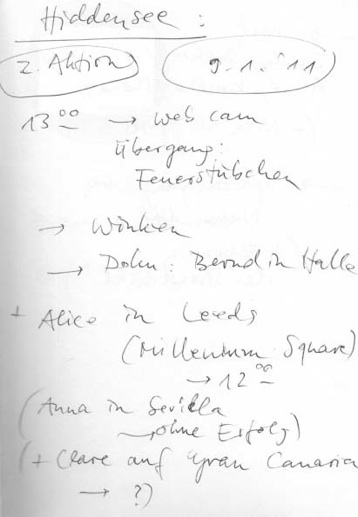 Hiddensee :
2. Aktion 9. 1. '11
13 00 → Web cam
Übergang:
Feuerstübchen
→ Winken
→ Dohn : Bernd in Halle
+ Alice in Leeds
(Millenium Square)
→ 12 00
(Anna in Sevilla
→ ohne Erfolg)
(+ Clare auf Gran Canaria
→ ?)